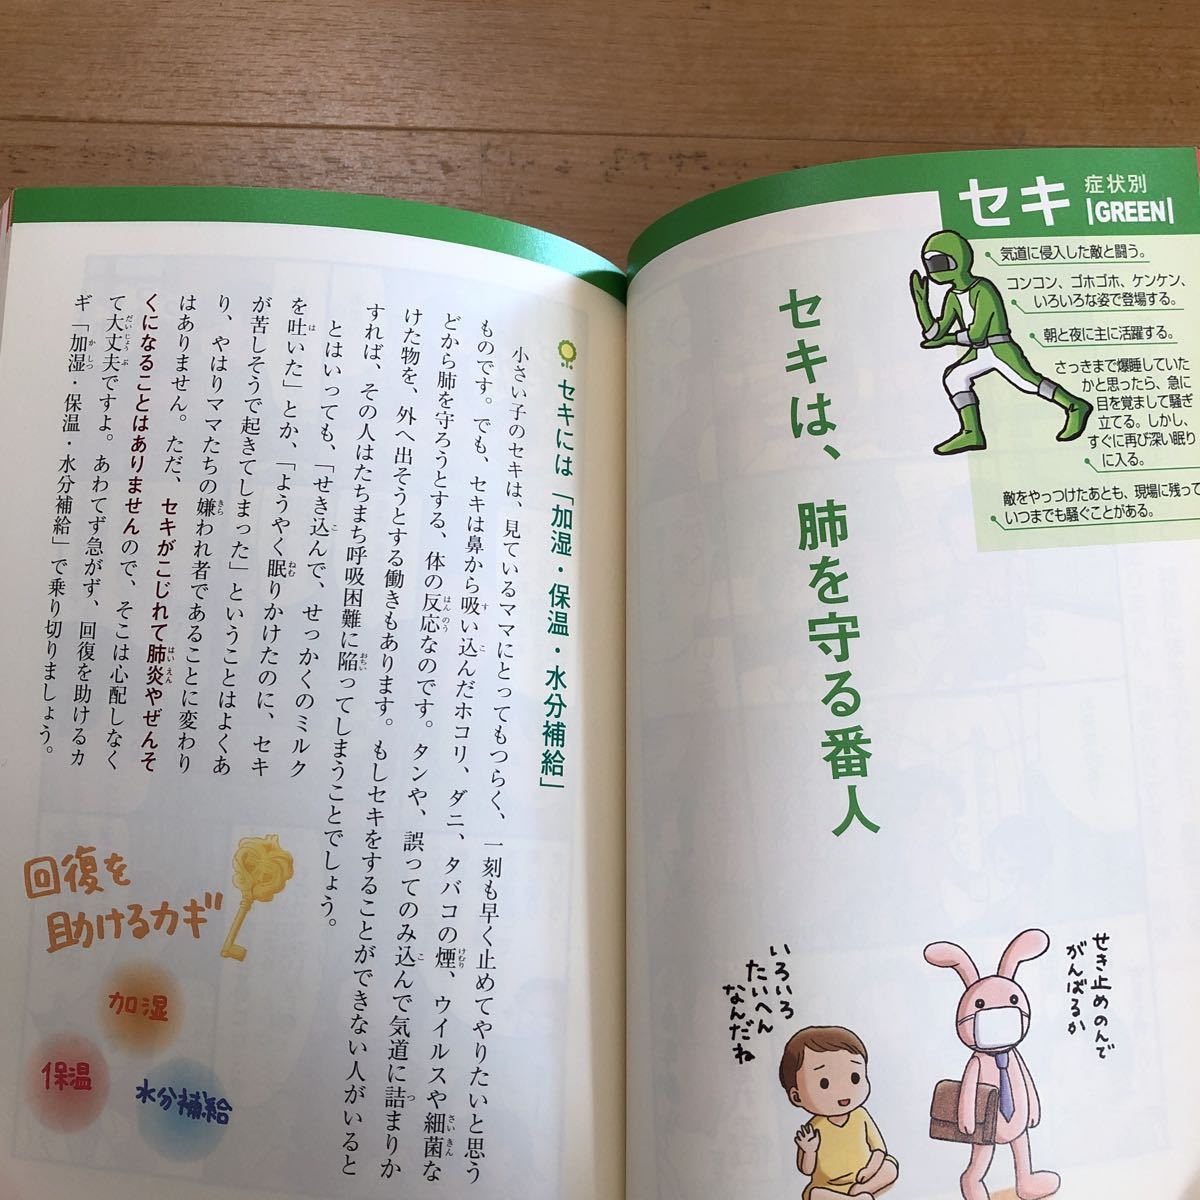 セキ
症状別
|GREEN|
気道に侵入した敵と闘う。
コンコン、ゴホゴホ、ケンケン、
いろいろな姿で登場する。
朝と夜に主に活躍する。
さっきまで爆睡していた
かと思ったら、急に
目を覚まして騒ぎ
立てる。しかし、
すぐに再び深い眠り
に入る。
敵をやっつけたあとも、現場に残って
いつまでも騒ぐことがある。
セキは、肺を守る番人
せき止めのんで
がんばるか
いろいろ
たいへん
なんだね
セキには「加湿・保温・水分補給」
小さい子のセキは、見ているママにとってもつらく、一刻も早く止めてやりたいと思う
ものです。でも、セキは鼻から吸い込んだホコリ、ダニ、タバコの煙、ウイルスや細菌な
どから肺を守ろうとする、体の反応なのです。タンや、誤ってのみ込んで気道に詰まりか
けた物を、外へ出そうとする働きもあります。もしセキをすることができない人がいると
すれば、その人はたちまち呼吸困難に陥ってしまうことでしょう。
とはいっても、「せき込んで、せっかくのミルク
を吐いた」とか、「ようやく眠りかけたのに、セキ
が苦しそうで起きてしまった」ということはよくあ
り、やはりママたちの嫌われ者であることに変わり
はありません。ただ、セキがこじれて肺炎やぜんそ
くになることはありませんので、そこは心配しなく
て大丈夫ですよ。あわてず急がず、回復を助けるカ
ギ「加湿・保温・水分補給」で乗り切りましょう。
回復を
助けるカギ
加湿
保温
水分補給